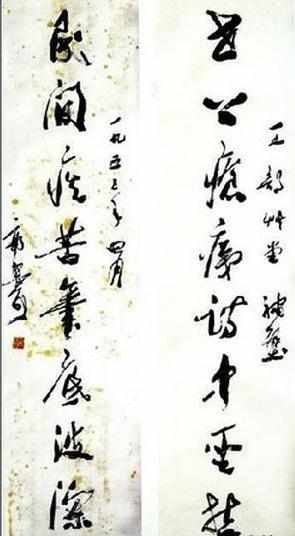 世上瘡痍詩中聖哲
工部艸堂補壁
民間疾苦筆底波瀾
一九五三年四月
郭沫若